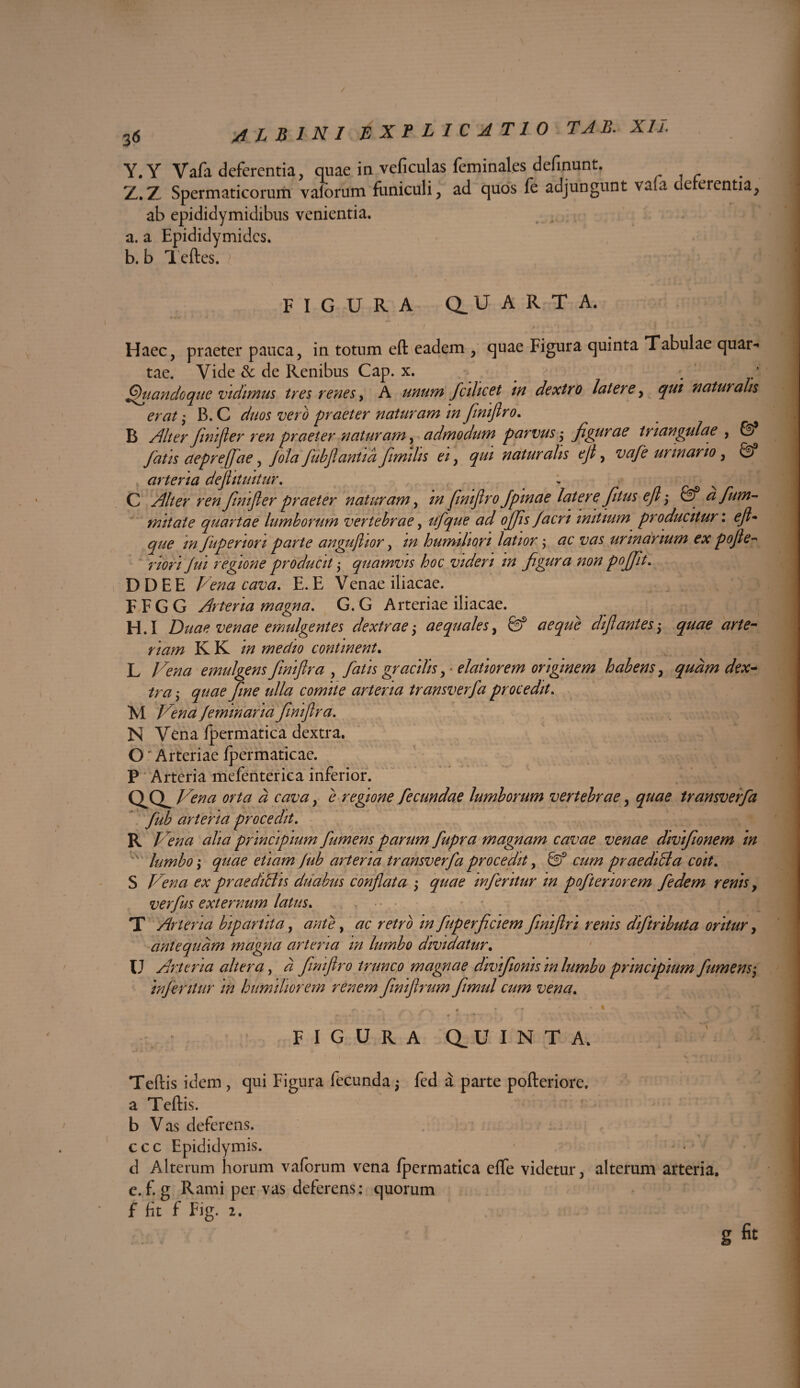 36 ALBINI EXPLICATIO TAB. XII.
Y. Y Vaſa deferentia, quae in veſiculas ſeminales deſinunt.
Z. Z Spermaticorum vaſorum funiculi, ad quos ſe adjungunt vaſa deferentia,
ab epididymidibus venientia.
a. a Epididymides.
b. b Teſtes.
FIGURA QUARTA.
Haec, praeter pauca, in totum eſt eadem, quae Figura quinta Tabulae quar-
tae. Vide & de Renibus Cap. x.
Quandoque vidimus tres renes, A unum ſcilicet in dextro latere, qui naturalis
erat; B. C duos vero praeter naturam in ſiniſtro.
B Alter ſiniſter ren praeter naturam, admodum parvus; figurae triangulae, &
ſatis depreſſae, ſola ſubſtantiâ ſimilis ei, qui naturalis eſt, vaſe urinario, &
arteria deſtituitur.
C Alter ren ſiniſter praeter naturam, in ſiniſtro ſpinae latere ſitus eſt; & à ſum-
mitate quartae lumborum vertebrae, uſque ad oſſis ſacri initium producitur: eſt-
que in ſuperiori parte anguſtior, in humiliori latior; ac vas urinarium ex poſte-
riori ſui regione producit; quamvis hoc videri in figura non poſſit.
D D E E Vena cava. E. E Venae iliacae.
F F G G Arteria magna. G. G Arteriae iliacae.
H. I Duae venae emulgentes dextrae; aequales, & aeque diſtantes; quae arte-
riam K K in medio continent.
L Vena emulgens ſiniſtra, ſatis gracilis, elatiorem originem habens, quàm dex-
tra; quae ſine ulla comite arteria transverſa procedit.
M Vena ſeminaria ſiniſtra.
N Vena ſpermatica dextra.
O Arteriae ſpermaticae.
P Arteria meſenterica inferior.
Q Q Vena orta à cava, è regione ſecundae lumborum vertebrae, quae transverſa
ſub arteria procedit.
R Vena alia principium ſumens parum ſupra magnam cavae venae diviſionem in
lumbo; quae etiam ſub arteria transverſa procedit, & cum praedicta coit.
S Vena ex praedictis duabus conflata; quae inſeritur in poſteriorem ſedem renis,
verſus externum latus.
T Arteria bipartita, antè, ac retrò in ſuperficiem ſiniſtri renis diſtributa oritur,
antequàm magna arteria in lumbo dividatur.
U Arteria altera, à ſiniſtro trunco magnae diviſionis in lumbo principium ſumens;
inſeritur in humiliorem renem ſiniſtrum ſimul cum vena.
FIGURA QUINTA.
Teſtis idem, qui Figura ſecunda; ſed à parte poſteriore.
a Teſtis.
b Vas deferens.
c c c Epididymis.
d Alterum horum vaſorum vena ſpermatica eſſe videtur, alterum arteria.
e. f. g Rami per vas deferens: quorum
f fit f Fig. 2.
g fit